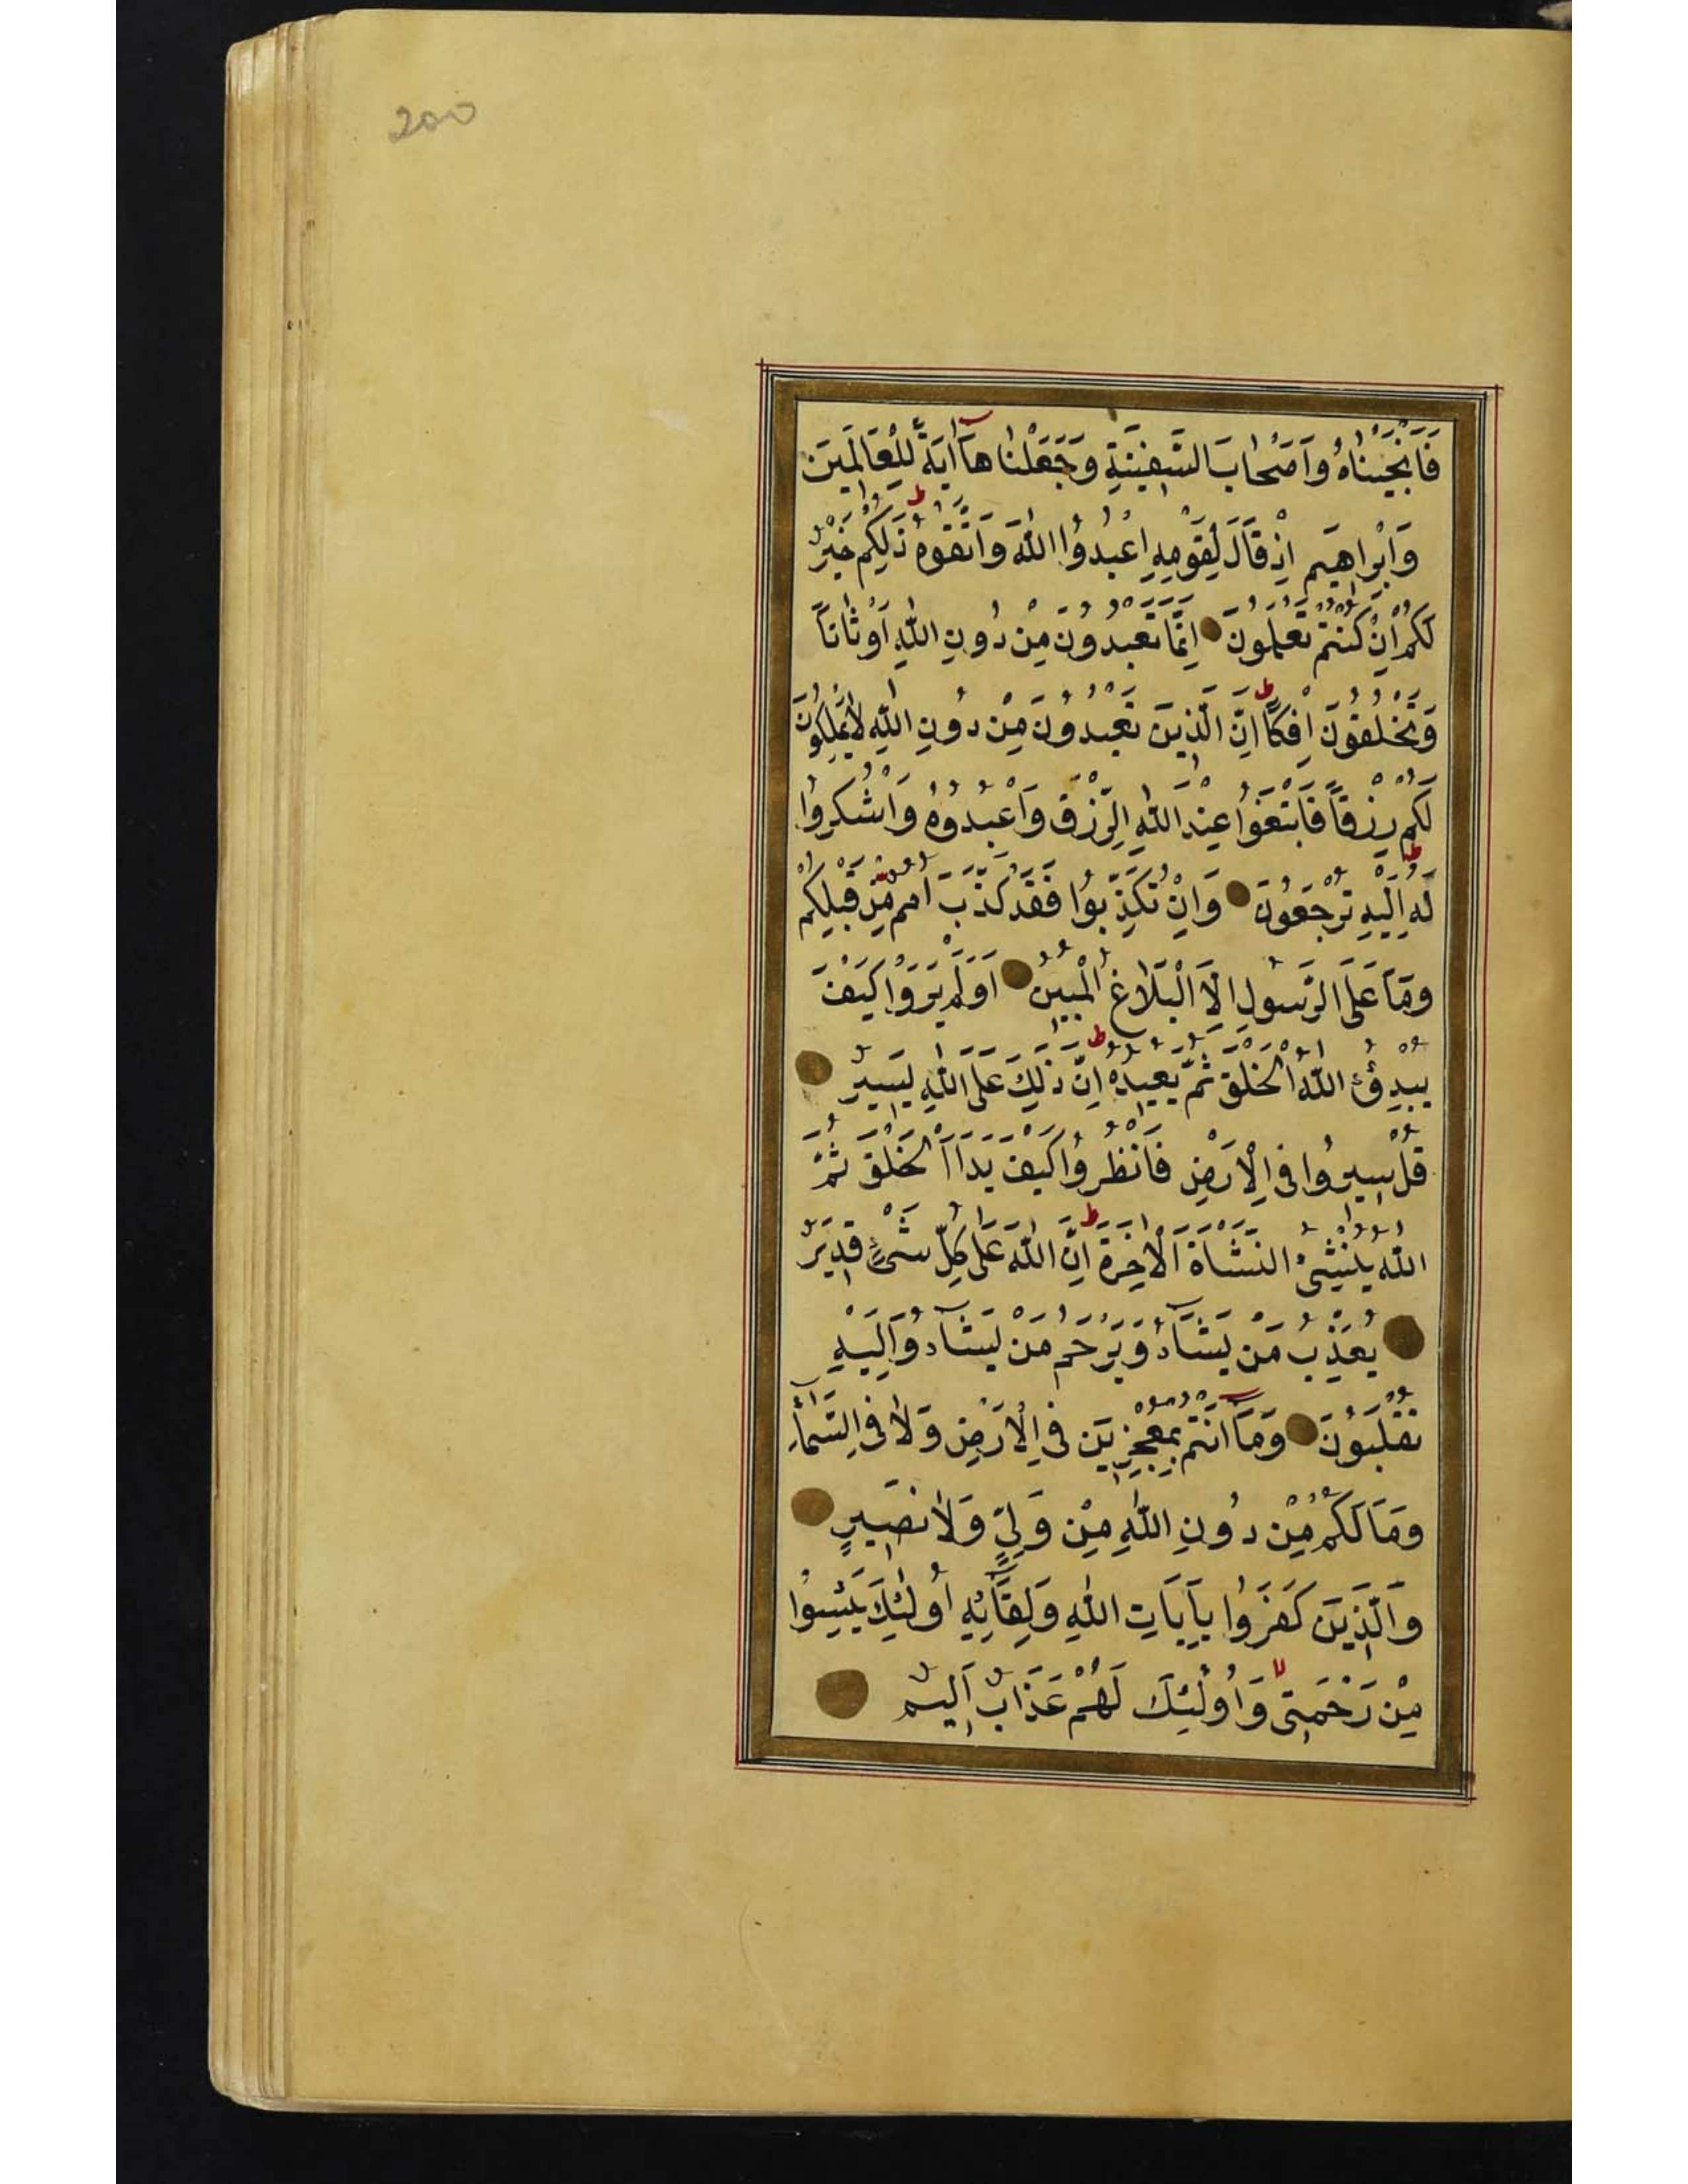 200
فَاَنْجَيْنَاهُ وَاَصْحَابَ السَّفِينَةِ وَجَعَلْنَاهَآ اٰيَةً لِلْعَالَمِينَ
وَاِبْرَاهِيمَ اِذْ قَالَ لِقَوْمِهِ اعْبُدُوا اللّٰهَ وَاتَّقُوهُ ط ذٰلِكُمْ خَيْرٌ
لَكُمْ اِنْ كُنْتُمْ تَعْلَمُونَ اِنَّمَا تَعْبُدُونَ مِنْ دُونِ اللّٰهِ اَوْثَانًا
وَتَخْلُقُونَ اِفْكًا ط اِنَّ الَّذِينَ تَعْبُدُونَ مِنْ دُونِ اللّٰهِ لَا يَمْلِكُونَ
لَكُمْ رِزْقًا فَابْتَغُوا عِنْدَ اللّٰهِ الرِّزْقَ وَاعْبُدُوهُ وَاشْكُرُوا
لَهُ ط اِلَيْهِ تُرْجَعُونَ وَاِنْ تُكَذِّبُوا فَقَدْ كَذَّبَ اُمَمٌ مِنْ قَبْلِكُمْ
وَمَا عَلَى الرَّسُولِ اِلَّا الْبَلَاغُ الْمُبِينُ اَوَلَمْ يَرَوْا كَيْفَ
يُبْدِئُ اللّٰهُ الْخَلْقَ ثُمَّ يُعِيدُهُ ط اِنَّ ذٰلِكَ عَلَى اللّٰهِ يَسِيرٌ
قُلْ سِيرُوا فِي الْاَرْضِ فَانْظُرُوا كَيْفَ بَدَاَ الْخَلْقَ ثُمَّ
اللّٰهُ يُنْشِئُ النَّشْاَةَ الْاٰخِرَةَ ط اِنَّ اللّٰهَ عَلٰى كُلِّ شَيْءٍ قَدِيرٌ
يُعَذِّبُ مَنْ يَشَآءُ وَيَرْحَمُ مَنْ يَشَآءُ وَاِلَيْهِ
تُقْلَبُونَ وَمَآ اَنْتُمْ بِمُعْجِزِينَ فِي الْاَرْضِ وَلَا فِي السَّمَآءِ
وَمَا لَكُمْ مِنْ دُونِ اللّٰهِ مِنْ وَلِيٍّ وَلَا نَصِيرٍ
وَالَّذِينَ كَفَرُوا بِاٰيَاتِ اللّٰهِ وَلِقَآئِهِ اُولٰئِكَ يَئِسُوا
مِنْ رَحْمَتِي لا وَاُولٰئِكَ لَهُمْ عَذَابٌ اَلِيمٌ